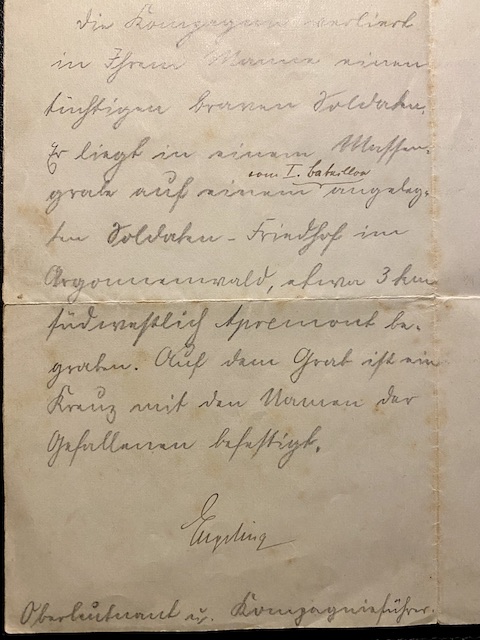 Die Kompagnie verliert
in Ihrem Manne einen
tüchtigen braven Soldaten.
Er liegt in einem Massen-
grabe auf einem vom I. Bataillon angeleg-
ten Soldaten-Friedhof im
Argonnenwald, etwa 3 km
südwestlich Apremont be-
graben. Auf dem Grab ist ein
Kreuz mit den Namen der
Gefallenen befestigt.
Oberleutnant u. Kompagnieführer.